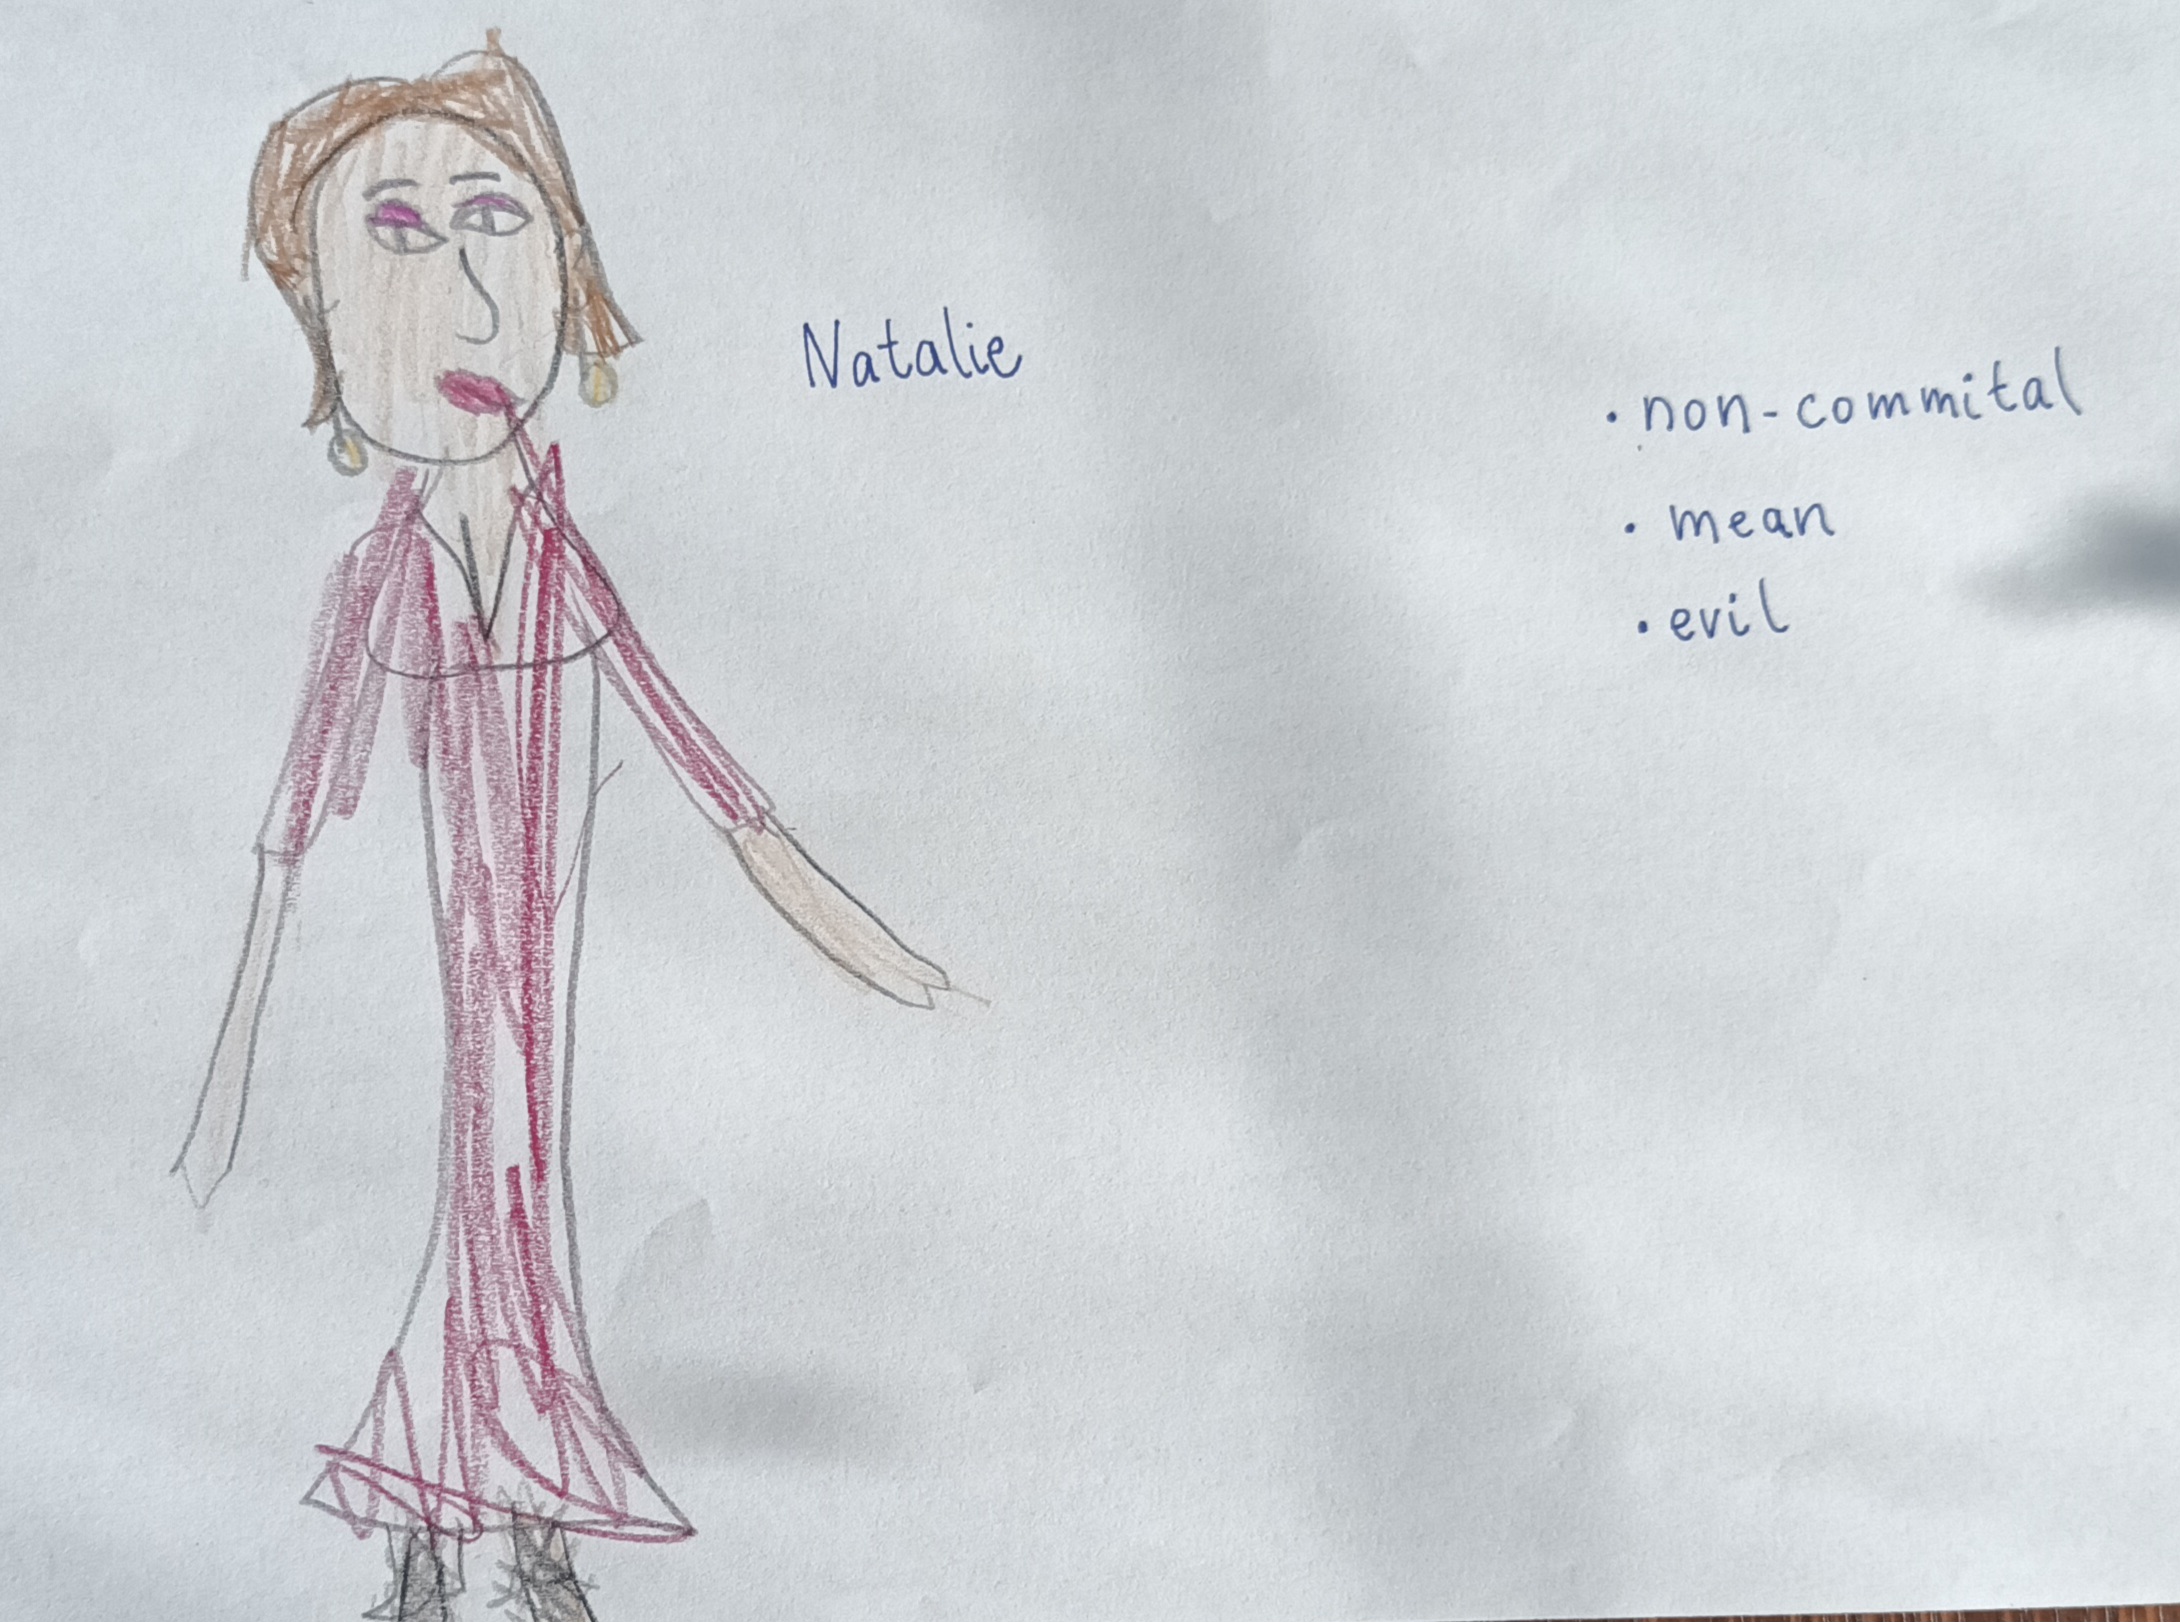 Natalie
• non-commital
• mean
• evil